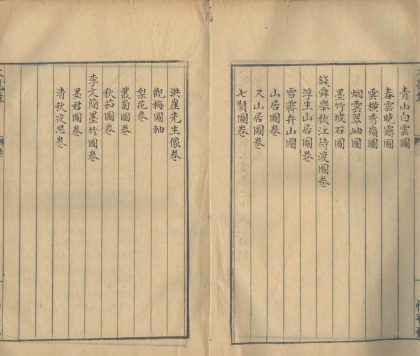 青山白雲圖
春雲曉靄圖
雲橫秀嶺圖
烟雲翠岫圖
墨竹坡石圖
錢舜舉秋江待渡圖卷
浮玉山居圖卷
雪霽弁山圖
山居圖卷
又山居圖卷
七賢圖卷
洪崖先生像卷
觀梅圖軸
梨花卷
叢菊圖卷
秋茄圖卷
李文簡墨竹圖卷
墨君圖卷
清秋夜思卷